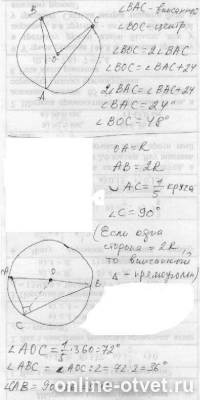 B
C
O
A
∠BAC - вписанный
∠BOC - центр
∠BOC = 2∠BAC
∠BOC = ∠BAC + 24
2∠BAC = ∠BAC + 24
∠BAC = 24°
∠BOC = 48°
OA = R
AB = 2R
◡AC = 1/5 круга
∠C = 90°
(Если одна
сторона = 2R,
то вписанный
Δ - прямоугольн)
A
O
B
C
∠AOC = 1/5 · 360 = 72°
∠ABC = ∠AOC : 2 = 72 : 2 = 36°
∠CAB = 90
online-otvet.ru